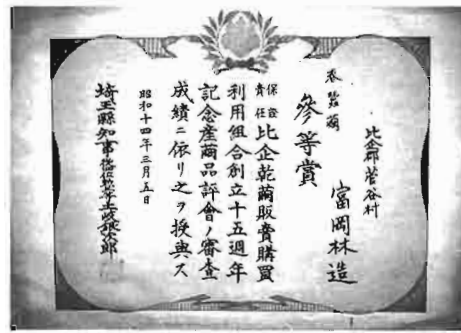 比企郡菅谷村
富岡林造
繭
參等賞
保證責任比企乾繭販賣購買
利用組合創立十五週年
記念産繭品評會ノ審査
成績ニ依リ之ヲ授與ス
昭和十四年三月五日
埼玉縣知事土岐銀次郎